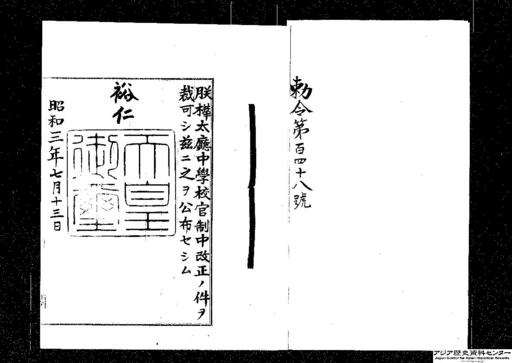 勅令第百四十八號
朕樺太廳中學校官制中改正ノ件ヲ
裁可シ茲ニ之ヲ公布セシム
裕仁
天皇
御璽
昭和三年七月十三日
アジア歴史資料センター
Japan Center for Asian Historical Records